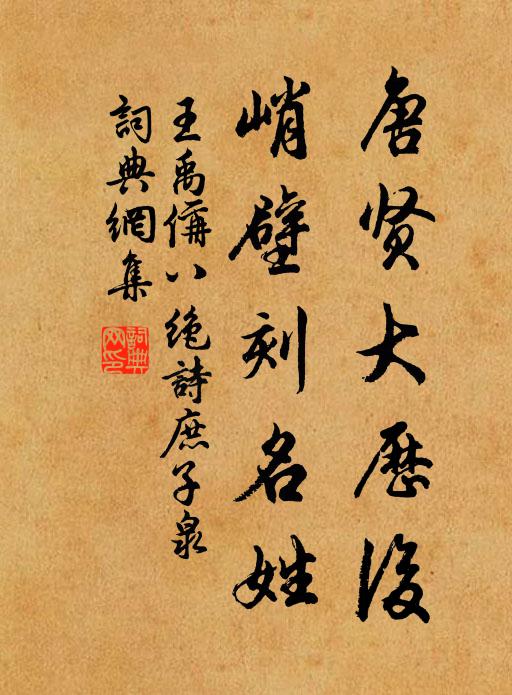 唐贤大歷後
峭壁刻名姓
王禹偁八绝詩庶子泉
詞典網集
詞典網印